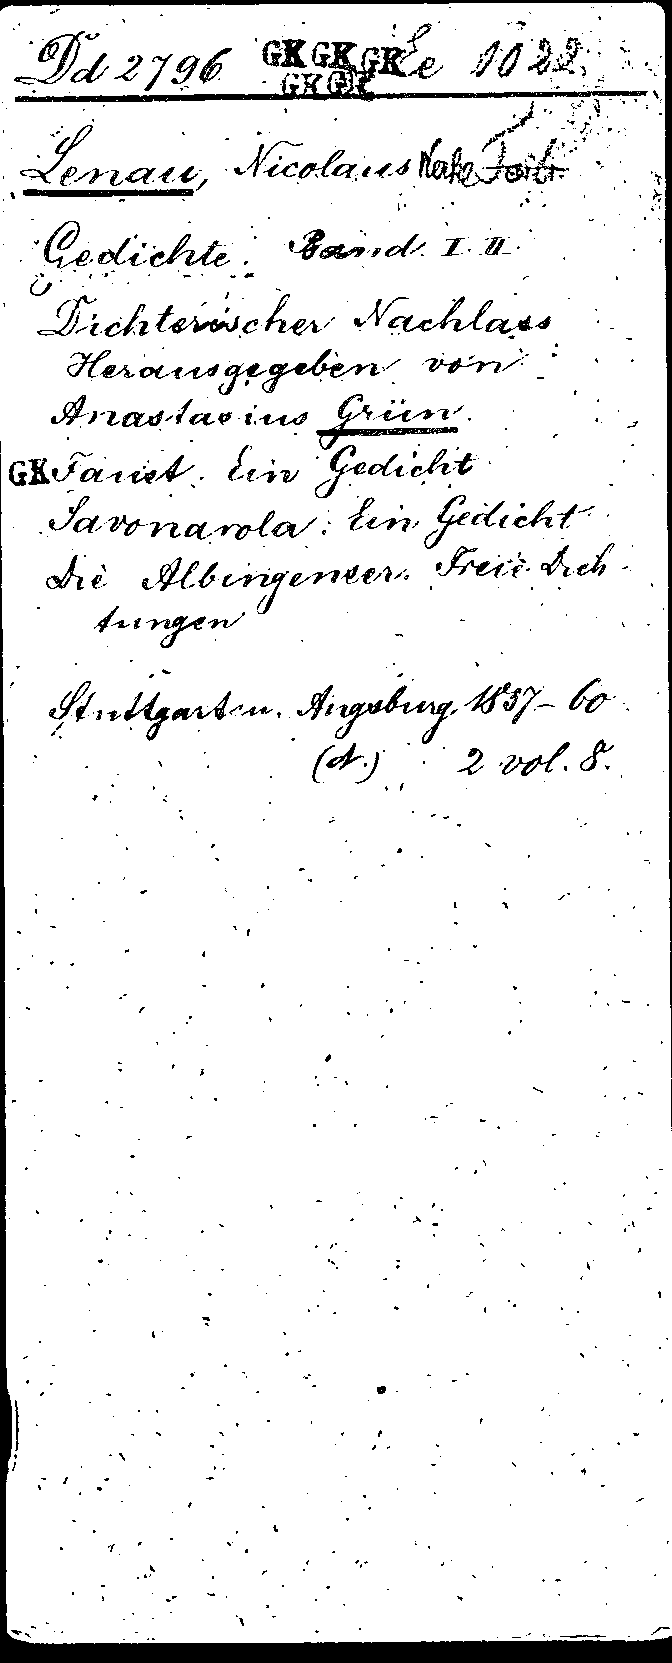 Dd 2796 GK GK GK Ee 1022
GK GK
Lenau, Nicolaus
Gedichte. Band I. II
Dichterischer Nachlass
Herausgegeben von
Anastasius Grün.
GK Faust. Ein Gedicht
Savonarola. Ein Gedicht
Die Albingenser. Freie Dich-
tungen
Stuttgart u. Augsburg. 1857-60
(A.) 2 vol. 8.